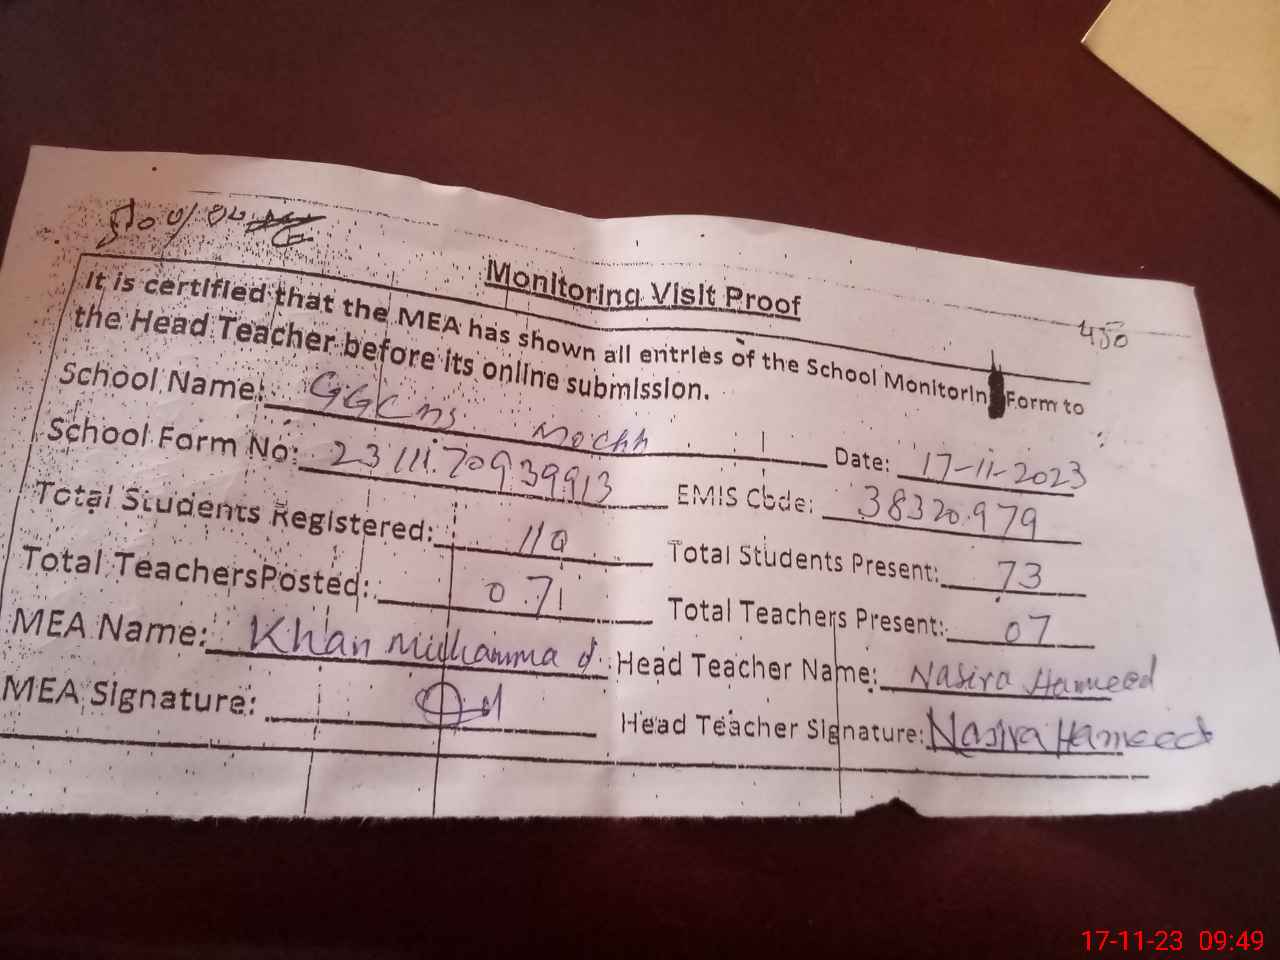 450
Monitoring Visit Proof
It is certified that the MEA has shown all entries of the School Monitorin Form to
the Head Teacher before its online submission.
School Name: GGCMS Mochh Date: 17-11-2023
School Form No: 23111170939913 EMIS Code: 38320979
Total Students Registered: 110 Total Students Present: 73
Total TeachersPosted: 07 Total Teachers Present: 07
MEA Name: Khan Muhammad Head Teacher Name: Nasira Hameed
MEA Signature: Head Teacher Signature: Nasira Hameed
17-11-23 09:49